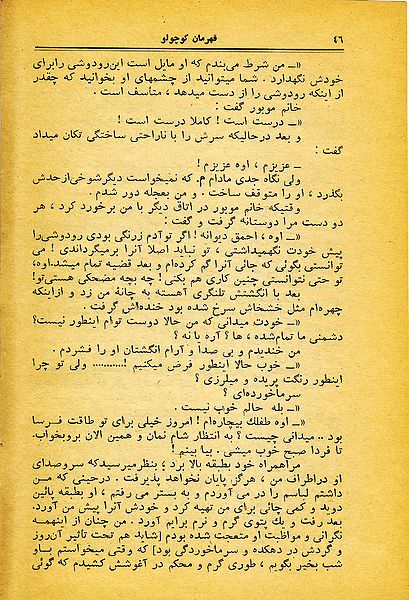 ۴۶ قهرمان کوچولو
«ـ من شرط می‌بندم که او مایل است این‌رودوشی رابرای
خودش نگهدارد . شما میتوانید از چشمهای او بخوانید که چقدر
از اینکه رودوشی را از دست میدهد ، متأسف است .
خانم موبور گفت :
«ـ درست است ! کاملا درست است !
و بعد درحالیکه سرش را با ناراحتی ساختگی تکان میداد
گفت :
ـ عزیزم ، اوه عزیزم !
ولی نگاه جدی مادام م. که نمیخواست دیگرشوخی‌ازحدش
بگذرد ، او را متوقف ساخت . و من بعجله دور شدم .
وقتیکه خانم موبور در اتاق دیگر با من برخورد کرد ، هر
دو دست مرا دوستانه گرفت و گفت :
«ـ اوه ، احمق دیوانه ! اگر توآدم زرنگی بودی رودوشی‌را
پیش خودت نگهمیداشتی ، تو نباید اصلا آنرا برمیگرداندی ! می
توانستی بگوئی که جائی آنرا گم کرده‌ام و بعد قضیه تمام میشد.اوه،
تو حتی نتوانستی چنین کاری هم بکنی ! چه بچه مضحکی هستی‌تو!
بعد با انگشتش تلنگری آهسته به چانهٔ من زد و ازاینکه
چهره‌ام مثل خشخاش سرخ شده بود خنده‌اش گرفت .
«ـ خودت میدانی که من حالا دوست توام اینطور نیست؟
دشمنی ما تمام‌شده ، ها؟ آره یا نه ؟
من خندیدم و بی صدا و آرام انگشتان او را فشردم .
«ـ خوب حالا اینطور فرض میکنیم !.......... ولی تو چرا
اینطور رنگت پریده و میلرزی ؟
سرماخورده‌ای ؟
«ـ بله حالم خوب نیست .
«ـ اوه طفلك بیچاره‌ام ! امروز خیلی برای تو طاقت فرسا
بود .. میدانی چیست ؟ به انتظار شام نمان و همین الان بروبخواب.
تا فردا صبح خوب میشی . بیا ببینم !
مراهمراه خود بطبقه بالا برد ؛ بنظرمیرسیدکه سروصدای
او دراطراف من ، هرگز پایان نخواهد پذیرفت . درحینی که من
داشتم لباسم را در می آوردم و به بستر می رفتم ، او بطبقه پائین
دوید و کمی چائی برای من تهیه کرد و خودش آنرا پیش من آورد.
بعد رفت و یك پتوی گرم و نرم برایم آورد . من چنان از اینهمه
نگرانی و مواظبت او متعجب شده بودم [شاید هم تحت تأثیر آن‌روز
و گردش در دهکده و سرماخوردگی بود] که وقتی میخواستم باو
شب بخیر بگویم ، طوری گرم و محکم در آغوشش کشیدم که گوئی